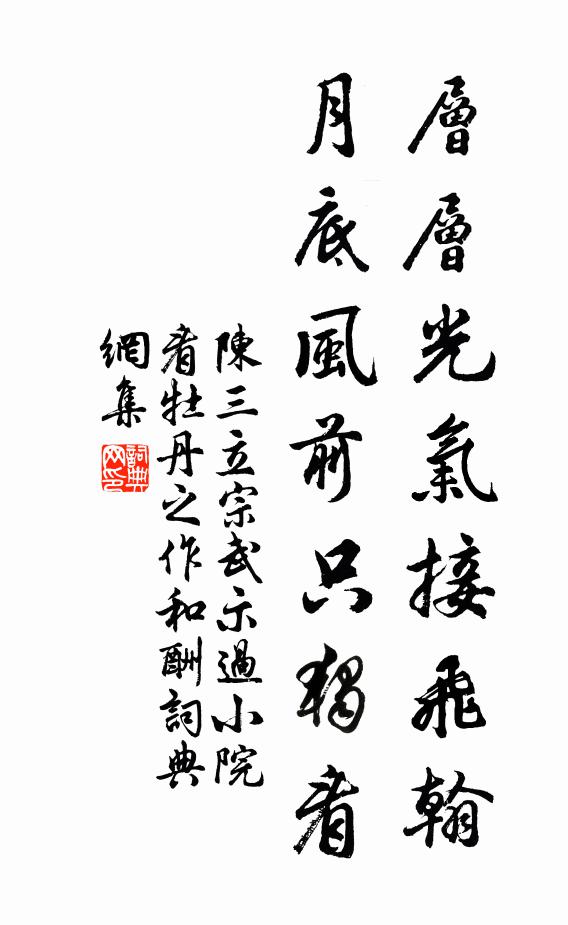 層層光氣接飛翰
月底風前只獨看
陳三立宗武示過小院
看牡丹之作和酬詞典
網集
詞典
网印